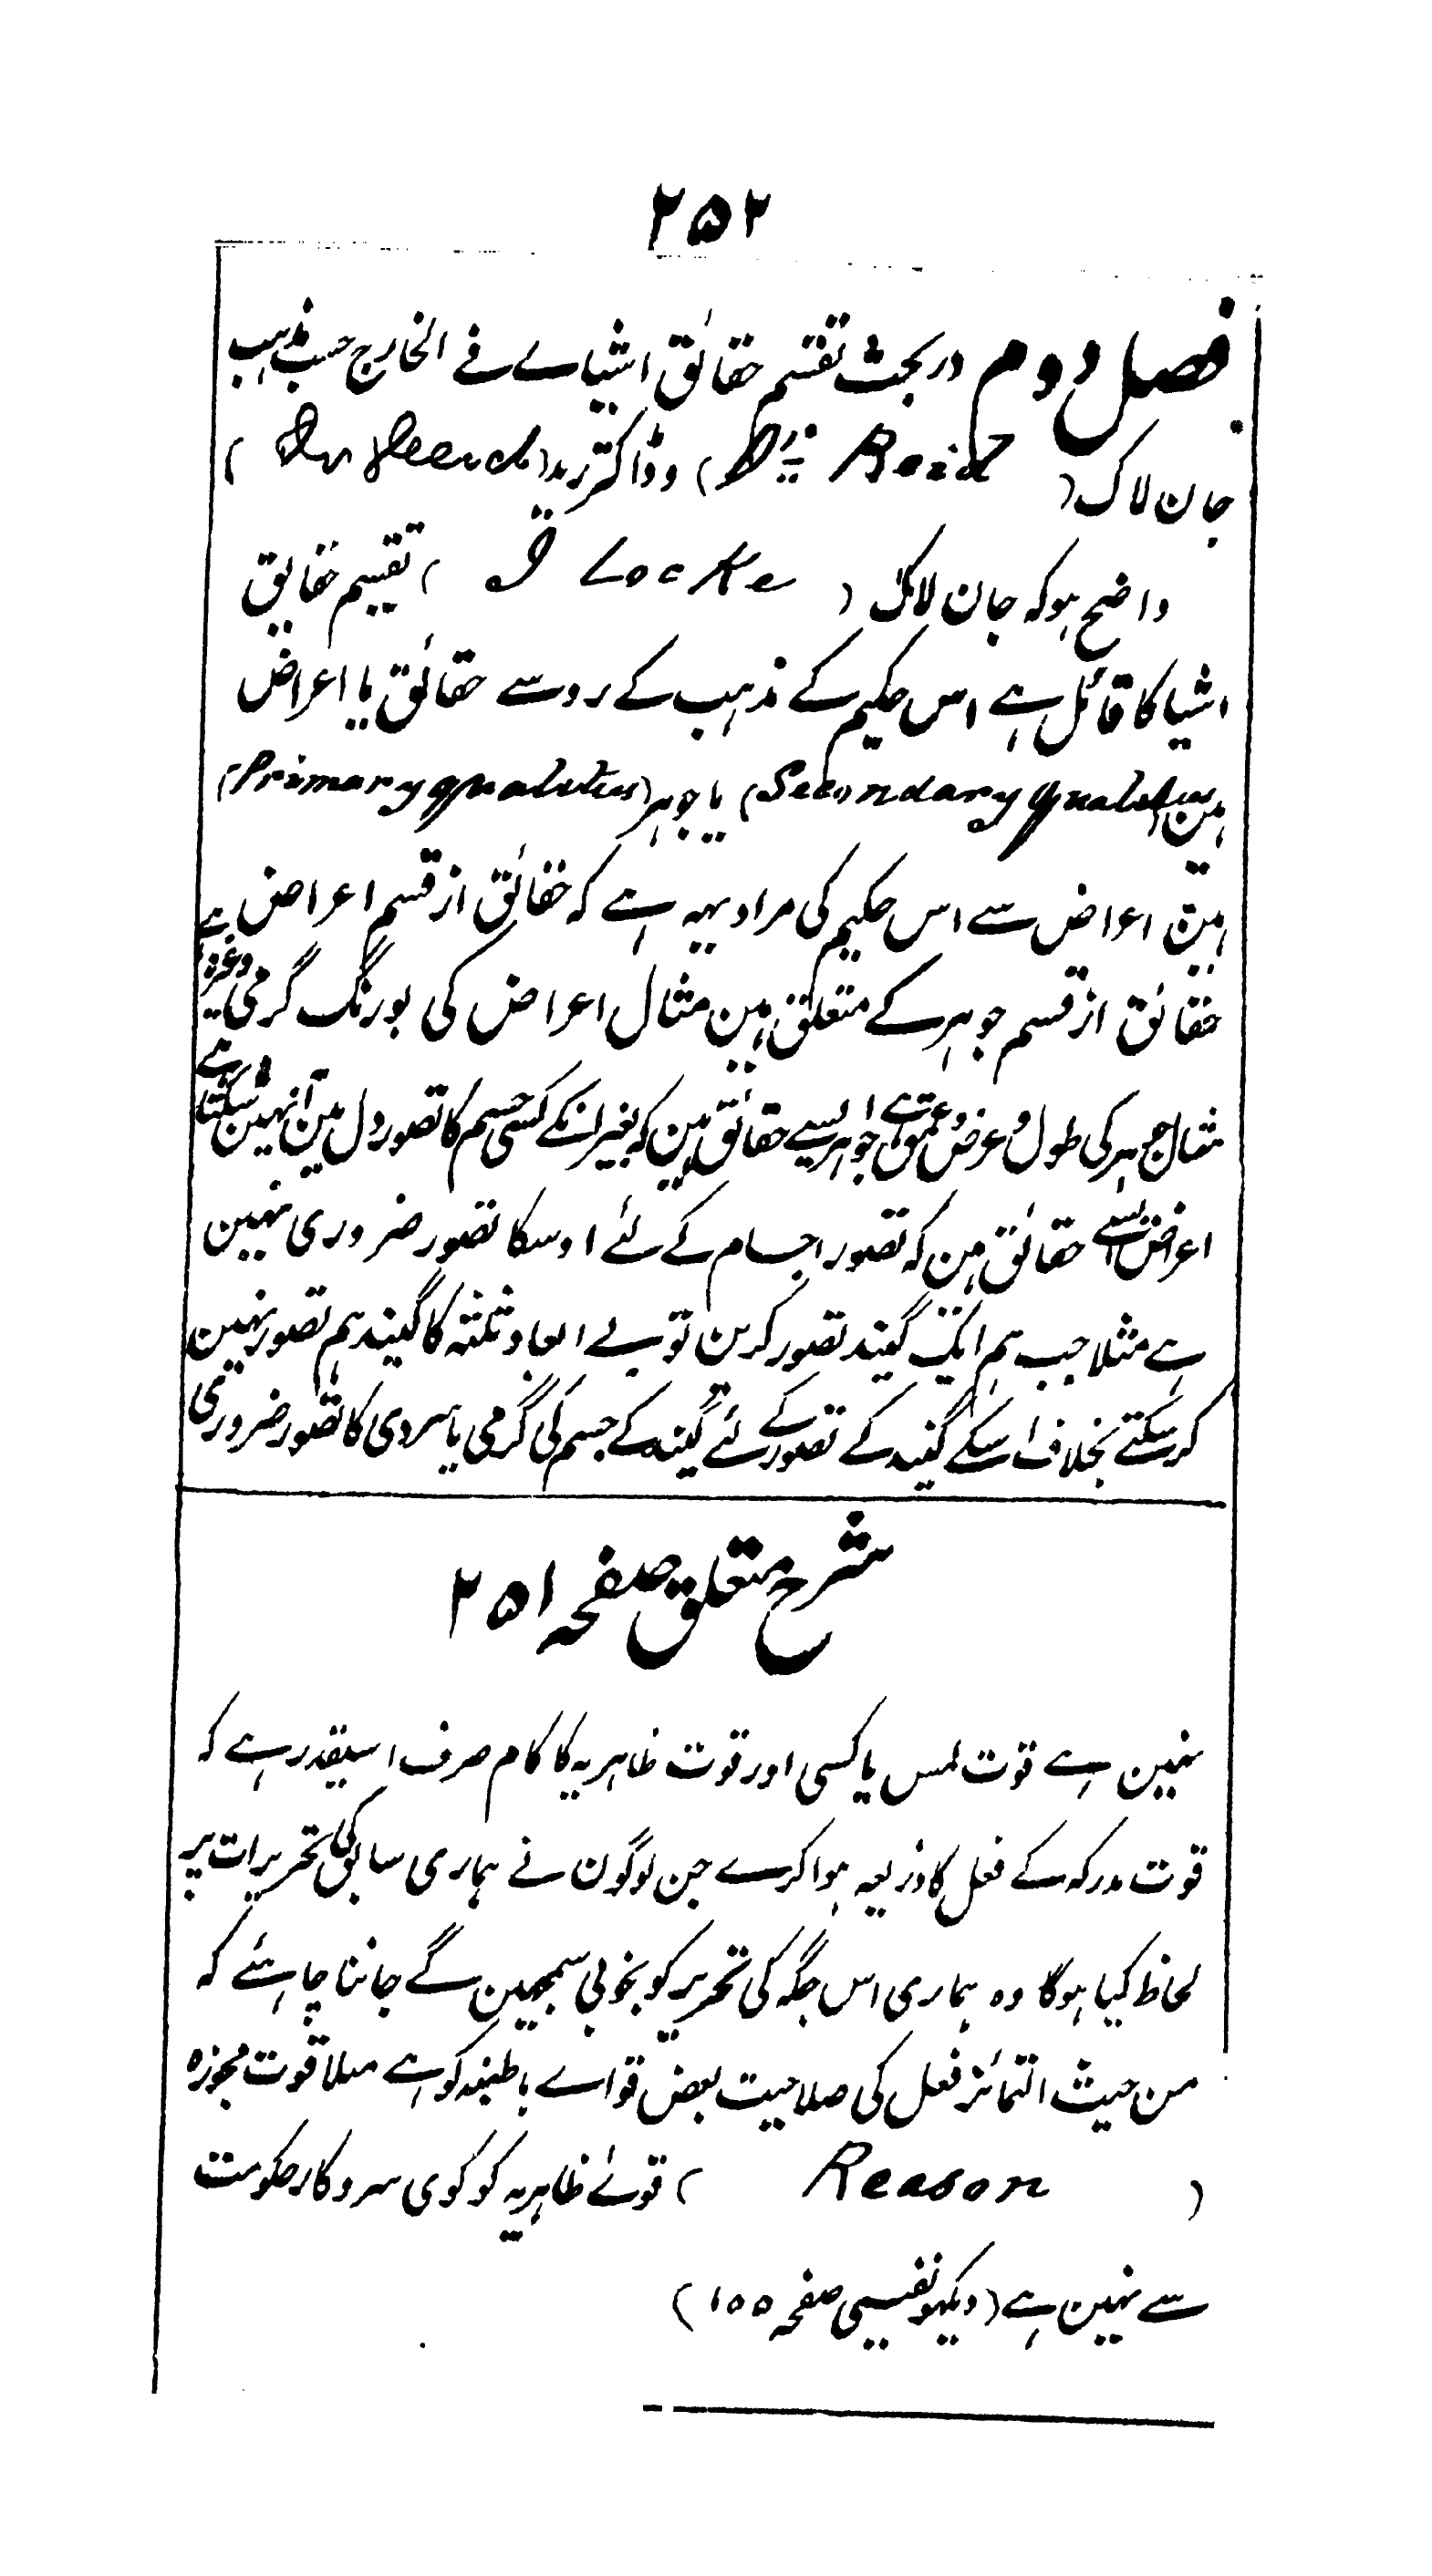 ۲۵۲
فصل دوم در بحث تقسیم حقائق اشیاے فے الخارج حسب مذہب
جان لاک (Dr. Reid) و ڈاکتر رید ( )
واضح ہو کہ جان لاک (J Locke) تقسیم حقایق
اشیا کا قائل ہے اس حکیم کے مذہب کے رو سے حقائق یا اعراض
ہین (Secondary qualities) یا جوہر (Primary qualities)
ہین اعراض سے اس حکیم کی مراد یہہ ہے کہ حقائق از قسم اعراض ہے
حقائق از قسم جوہر کے متعلق ہین مثال اعراض کی بو رنگ گرمی وغیرہ ہے اور
مثال جوہر کی طول و عرض و عمق ہے جواہر ایسے حقائق ہین کہ بغیر انکے کسی جسم کا تصور دل مین آ نہین سکتا
اعراض ایسے حقائق ہین کہ تصور اجسام کے لئے اوسکا تصور ضروری نہین
ہے مثلا جب ہم ایک گیند تصور کرین تو بے ابعاد ثلثہ کا گیند ہم تصور نہین
کرسکتے بخلاف اسکے گیند کے تصور کے لئے گیند کے جسم کی گرمی یا سردی کا تصور ضروری
شرح متعلق صفحہ ۲۵۱
نہین ہے قوت لمس یا کسی اور قوت ظاہریہ کا کام صرف اسیقدر ہے کہ
قوت مدرکہ کے فعل کا ذریعہ ہوا کرے جن لوگون نے ہماری سابق کی تحریرات پر
لحاظ کیا ہوگا وہ ہماری اس جگہ کی تحریر کو بخوبی سمجہین گے جاننا چاہئے کہ
من حیث فعل کی صلاحیت بعض قواے باطنیہ کو ہے مثلا قوت مجوزہ
(Reason) قوے ظاہریہ کو کوی سروکار حکومت
سے نہین ہے (دیکہو نفیسی صفحہ ۱۵۵)